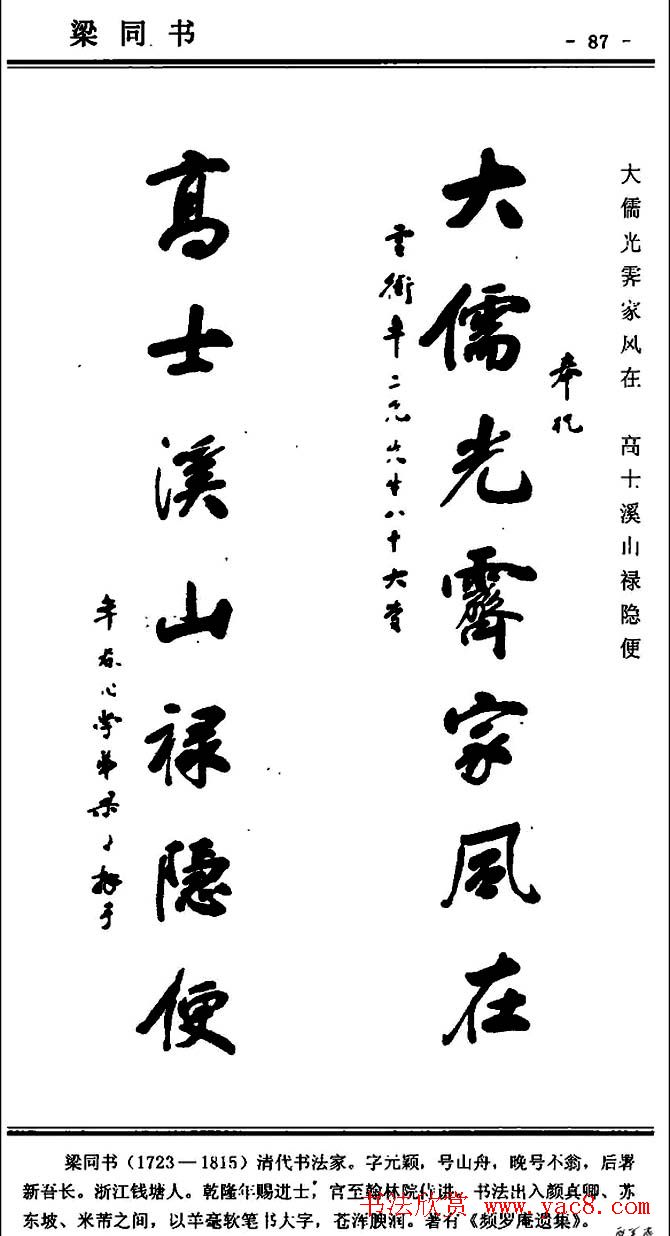 梁同书
- 87 -
大儒光霁家风在 高士溪山禄隐便
大儒光霽家風在
奉祝
高士溪山禄隐便
梁同书（1723—1815）清代书法家。字元颖，号山舟，晚号不翁，后署
新吾长。浙江钱塘人。乾隆年赐进士，官至翰林院侍讲。书法出入颜真卿、苏
东坡、米芾之间，以羊毫软笔书大字，苍浑腴润。著有《频罗庵遗集》。
书法欣赏
www.yac8.com